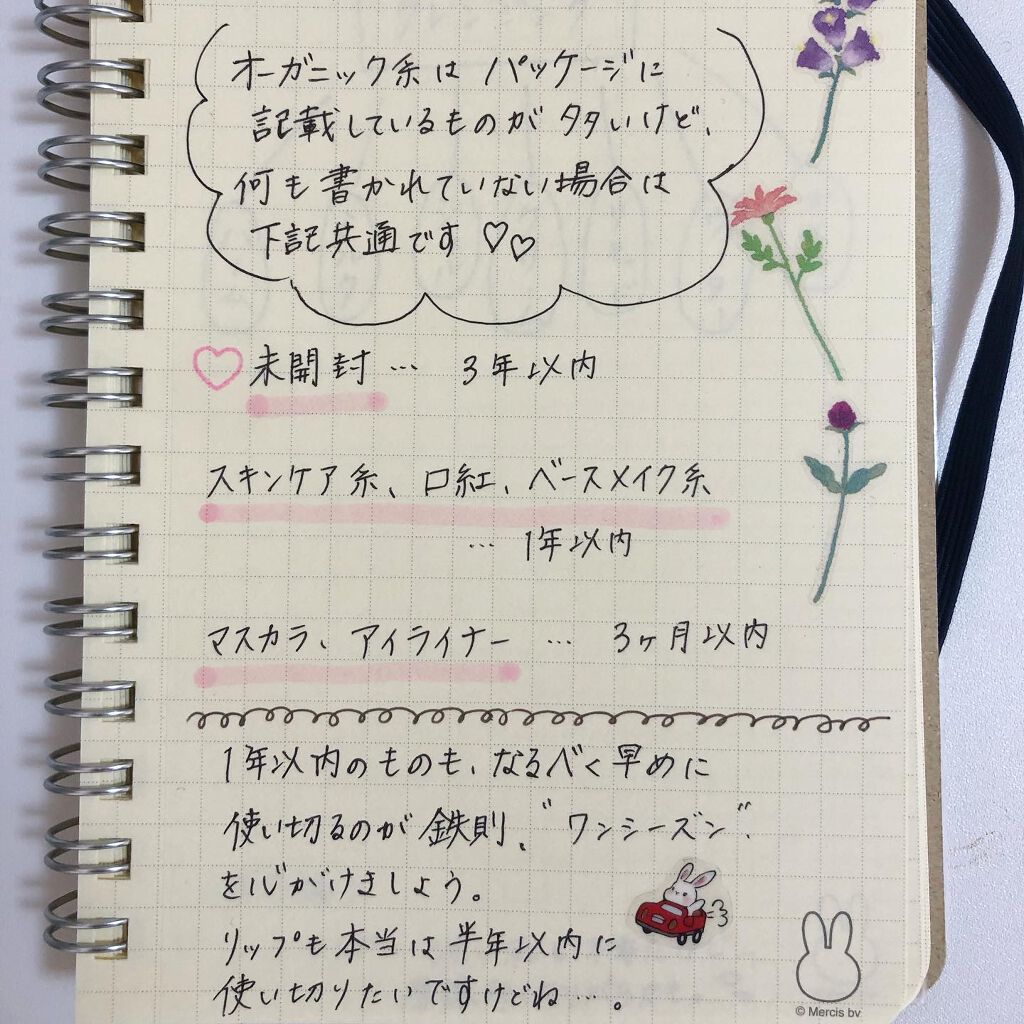 オーガニック系は パッケージに
記載しているものが多いけど、
何も書かれていない場合は
下記共通です♡♡
♡未開封 … 3年以内
スキンケア系、口紅、ベースメイク系
… 1年以内
マスカラ、アイライナー … 3ヶ月以内
1年以内のものも、なるべく早めに
使い切るのが鉄則。"ワンシーズン"
を心がけましょう。
リップも本当は半年以内に
使い切りたいですけどね…。
© Mercis bv